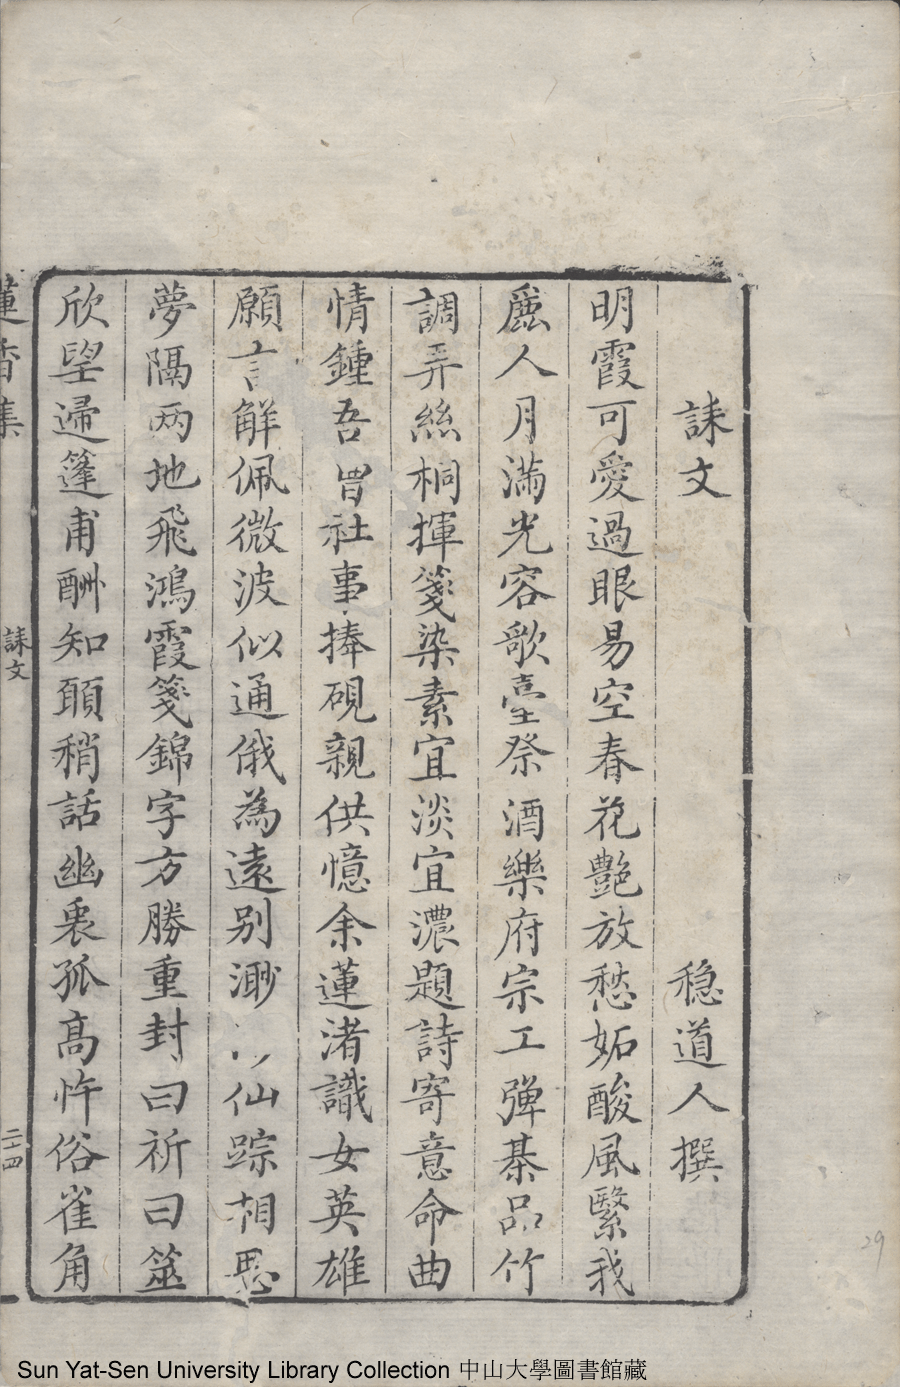 誄文
穏道人撰
明霞可愛過眼易空春花艷放愁妬酸風繄我
麗人月滿光容歌臺祭酒樂府宗工彈棊品竹
調弄絲桐揮箋染素宜淡宜濃題詩寄意命曲
情鍾吾曾社事捧硯親供憶余蓮渚識女英雄
願言解佩微波似通俄為遠别渺仙踪相思
夢隔两地飛鴻霞箋錦字方勝重封曰祈曰筮
欣望歸篷甫酬知頋稍話幽裏孤高忤俗雀角
蓮香集
誄文
二十四
29
Sun Yat-Sen University Library Collection 中山大學圖書館藏